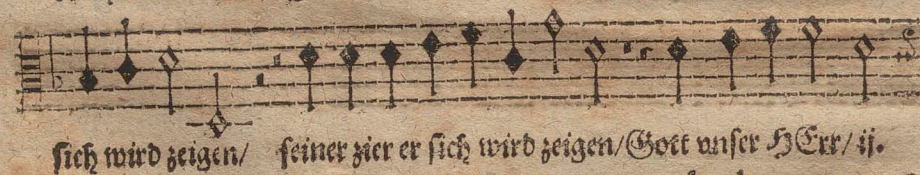 sich wird zeigen/ seiner zier er sich wird zeigen/Gott vnser HErr/ ij.